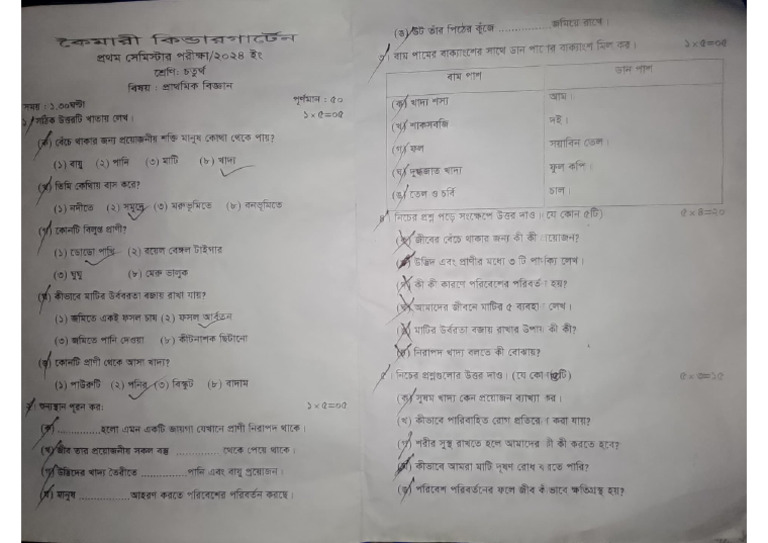 কৈমারী কিন্ডারগার্টেন
প্রথম সেমিস্টার পরীক্ষা/২০২৪ ইং
শ্রেণি: চতুর্থ
বিষয় : প্রাথমিক বিজ্ঞান
সময় : ১.০০ঘন্টা পূর্ণমান : ৫০
১। সঠিক উত্তরটি খাতায় লেখ। ১×৫=০৫
(ক) বেঁচে থাকার জন্য প্রয়োজনীয় শক্তি মানুষ কোথা থেকে পায়?
(১) বায়ু (২) পানি (৩) মাটি (৮) খাদ্য
(খ) তিমি কোথায় বাস করে?
(১) নদীতে (২) সমুদ্রে (৩) মরুভূমিতে (৮) বনভূমিতে
(গ) কোনটি বিলুপ্ত প্রাণী?
(১) ডোডো পাখি (২) রয়েল বেঙ্গল টাইগার
(৩) ঘুঘু (৮) মেরু ভালুক
(ঘ) কীভাবে মাটির উর্বরতা বজায় রাখা যায়?
(১) জমিতে একই ফসল চাষ (২) ফসল আর্বতন
(৩) জমিতে পানি দেওয়া (৮) কীটনাশক ছিটানো
(ঙ) কোনটি প্রাণী থেকে আসা খাদ্য?
(১) পাউরুটি (২) পনির (৩) বিস্কুট (৮) বাদাম
২। শূন্যস্থান পূরন কর: ১×৫=০৫
(ক) ..............হলো এমন একটি জায়গা যেখানে প্রাণী নিরাপদ থাকে।
(খ) জীব তার প্রয়োজনীয় সকল বস্তু .............. থেকে পেয়ে থাকে।
(গ) উদ্ভিদের খাদ্য তৈরীতে ...............পানি এবং বায়ু প্রয়োজন।
(ঘ) মানুষ .................আহরণ করতে পরিবেশের পরিবর্তন করছে।
(ঙ) উট তাঁর পিঠের কুঁজে ................. জমিয়ে রাখে।
৩। বাম পাশের বাক্যাংশের সাথে ডান পাশের বাক্যাংশ মিল কর। ১×৫=০৫
বাম পাশ ডান পাশ
(ক) খাদ্য শস্য আম।
(খ) শাকসবজি দই।
(গ) ফল সয়াবিন তেল।
(ঘ) দুগ্ধজাত খাদ্য ফুল কপি।
(ঙ) তেল ও চর্বি চাল।
৪। নিচের প্রশ্ন পড়ে সংক্ষেপে উত্তর দাও। (যে কোন ৫টি) ৫×৪=২০
(ক) জীবের বেঁচে থাকার জন্য কী কী প্রয়োজন?
উদ্ভিদ এবং প্রাণীর মধ্যে ৩ টি পার্থক্য লেখ।
(গ) কী কী কারণে পরিবেশের পরিবর্তন হয়?
(ঘ) আমাদের জীবনে মাটির ৫ ব্যবহার লেখ।
মাটির উর্বরতা বজায় রাখার উপায় কী কী?
নিরাপদ খাদ্য বলতে কী বোঝায়?
৫। নিচের প্রশ্নগুলোর উত্তর দাও। (যে কোন টি) ৫×৩=১৫
(ক) সুষম খাদ্য কেন প্রয়োজন ব্যাখ্যা কর।
(খ) কীভাবে পানিবাহিত রোগ প্রতিরোধ করা যায়?
(গ) শরীর সুস্থ রাখতে হলে আমাদের কী কী করতে হবে?
(ঘ) কীভাবে আমরা মাটি দূষণ রোধ করতে পারি?
(ঙ) পরিবেশ পরিবর্তনের ফলে জীব কীভাবে ক্ষতিগ্রস্থ হয়?